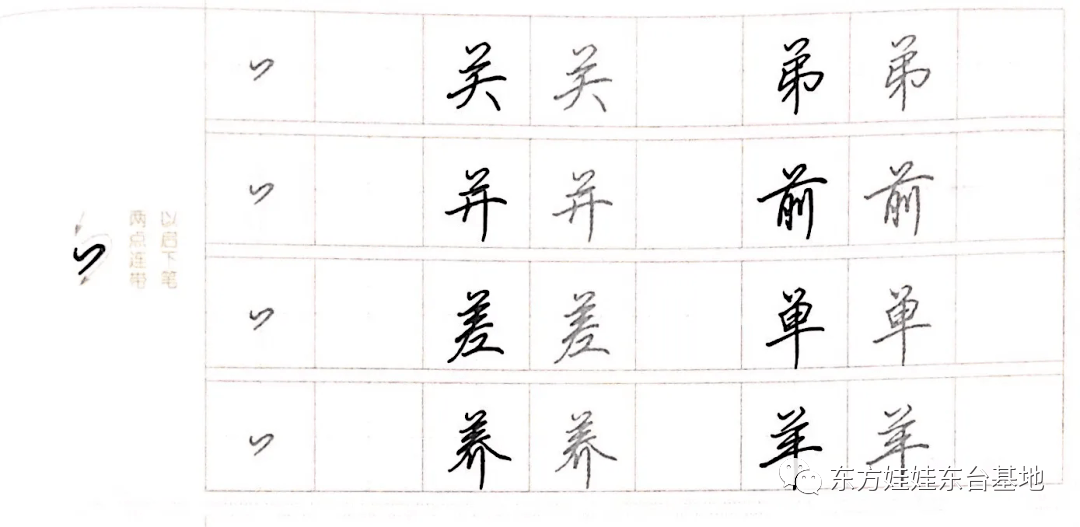 以启下笔
两点连带
丷
丷 关 关 弟 弟
丷 并 并 前 前
丷 差 差 单 单
丷 养 养 羊 羊
东方娃娃东台基地